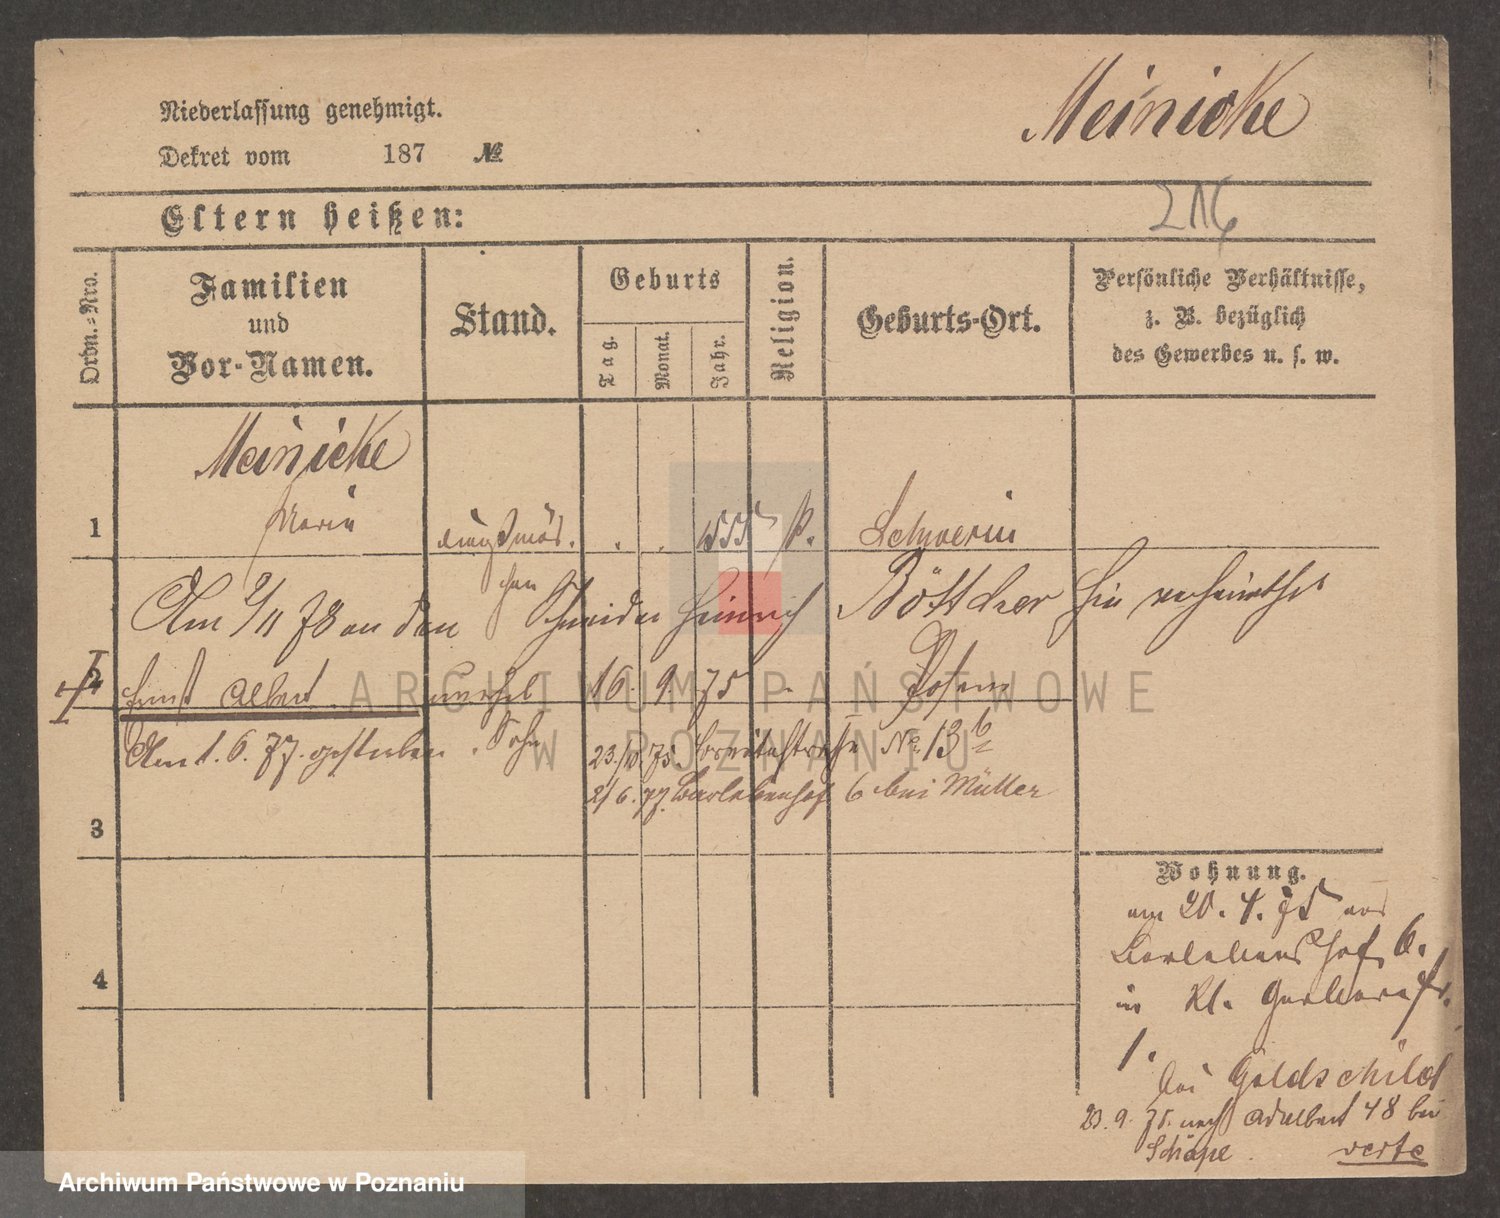 Meinicke
Niederlassung genehmigt.
Dekret vom 187 №
216
Eltern heißen:
Ordn.-Nro.
Familien
und
Vor-Namen.
Stand.
Geburts
Tag.
Monat.
Jahr.
Religion.
Geburts-Ort.
Persönliche Verhältnisse,
z. B. bezüglich
des Gewerbes u. s. w.
Meinicke
1 Marie 1855 k. Schwerin
Am 9/11 78 an den Schneider Heinrich Böttcher hie verheirathet
2 Ernst Albert unehel 16. 9. 75 Posen
Am 1. 6. 77. gestorben. Sohn
23./10. 75. Breitestraße No 13 b
2/6. 77. Barlebenshof 6 bei Müller
3
4
Wohnung.
am 20. 4. 75 aus
Barlebens Hof 6.
in Kl. Gerberstr.
1.
bei Goldschild
23. 9. 75. nach Adalbert 48 bei
Schäpe. verte
ARCHIWUM PAŃSTWOWE
W POZNANIU
Archiwum Państwowe w Poznaniu